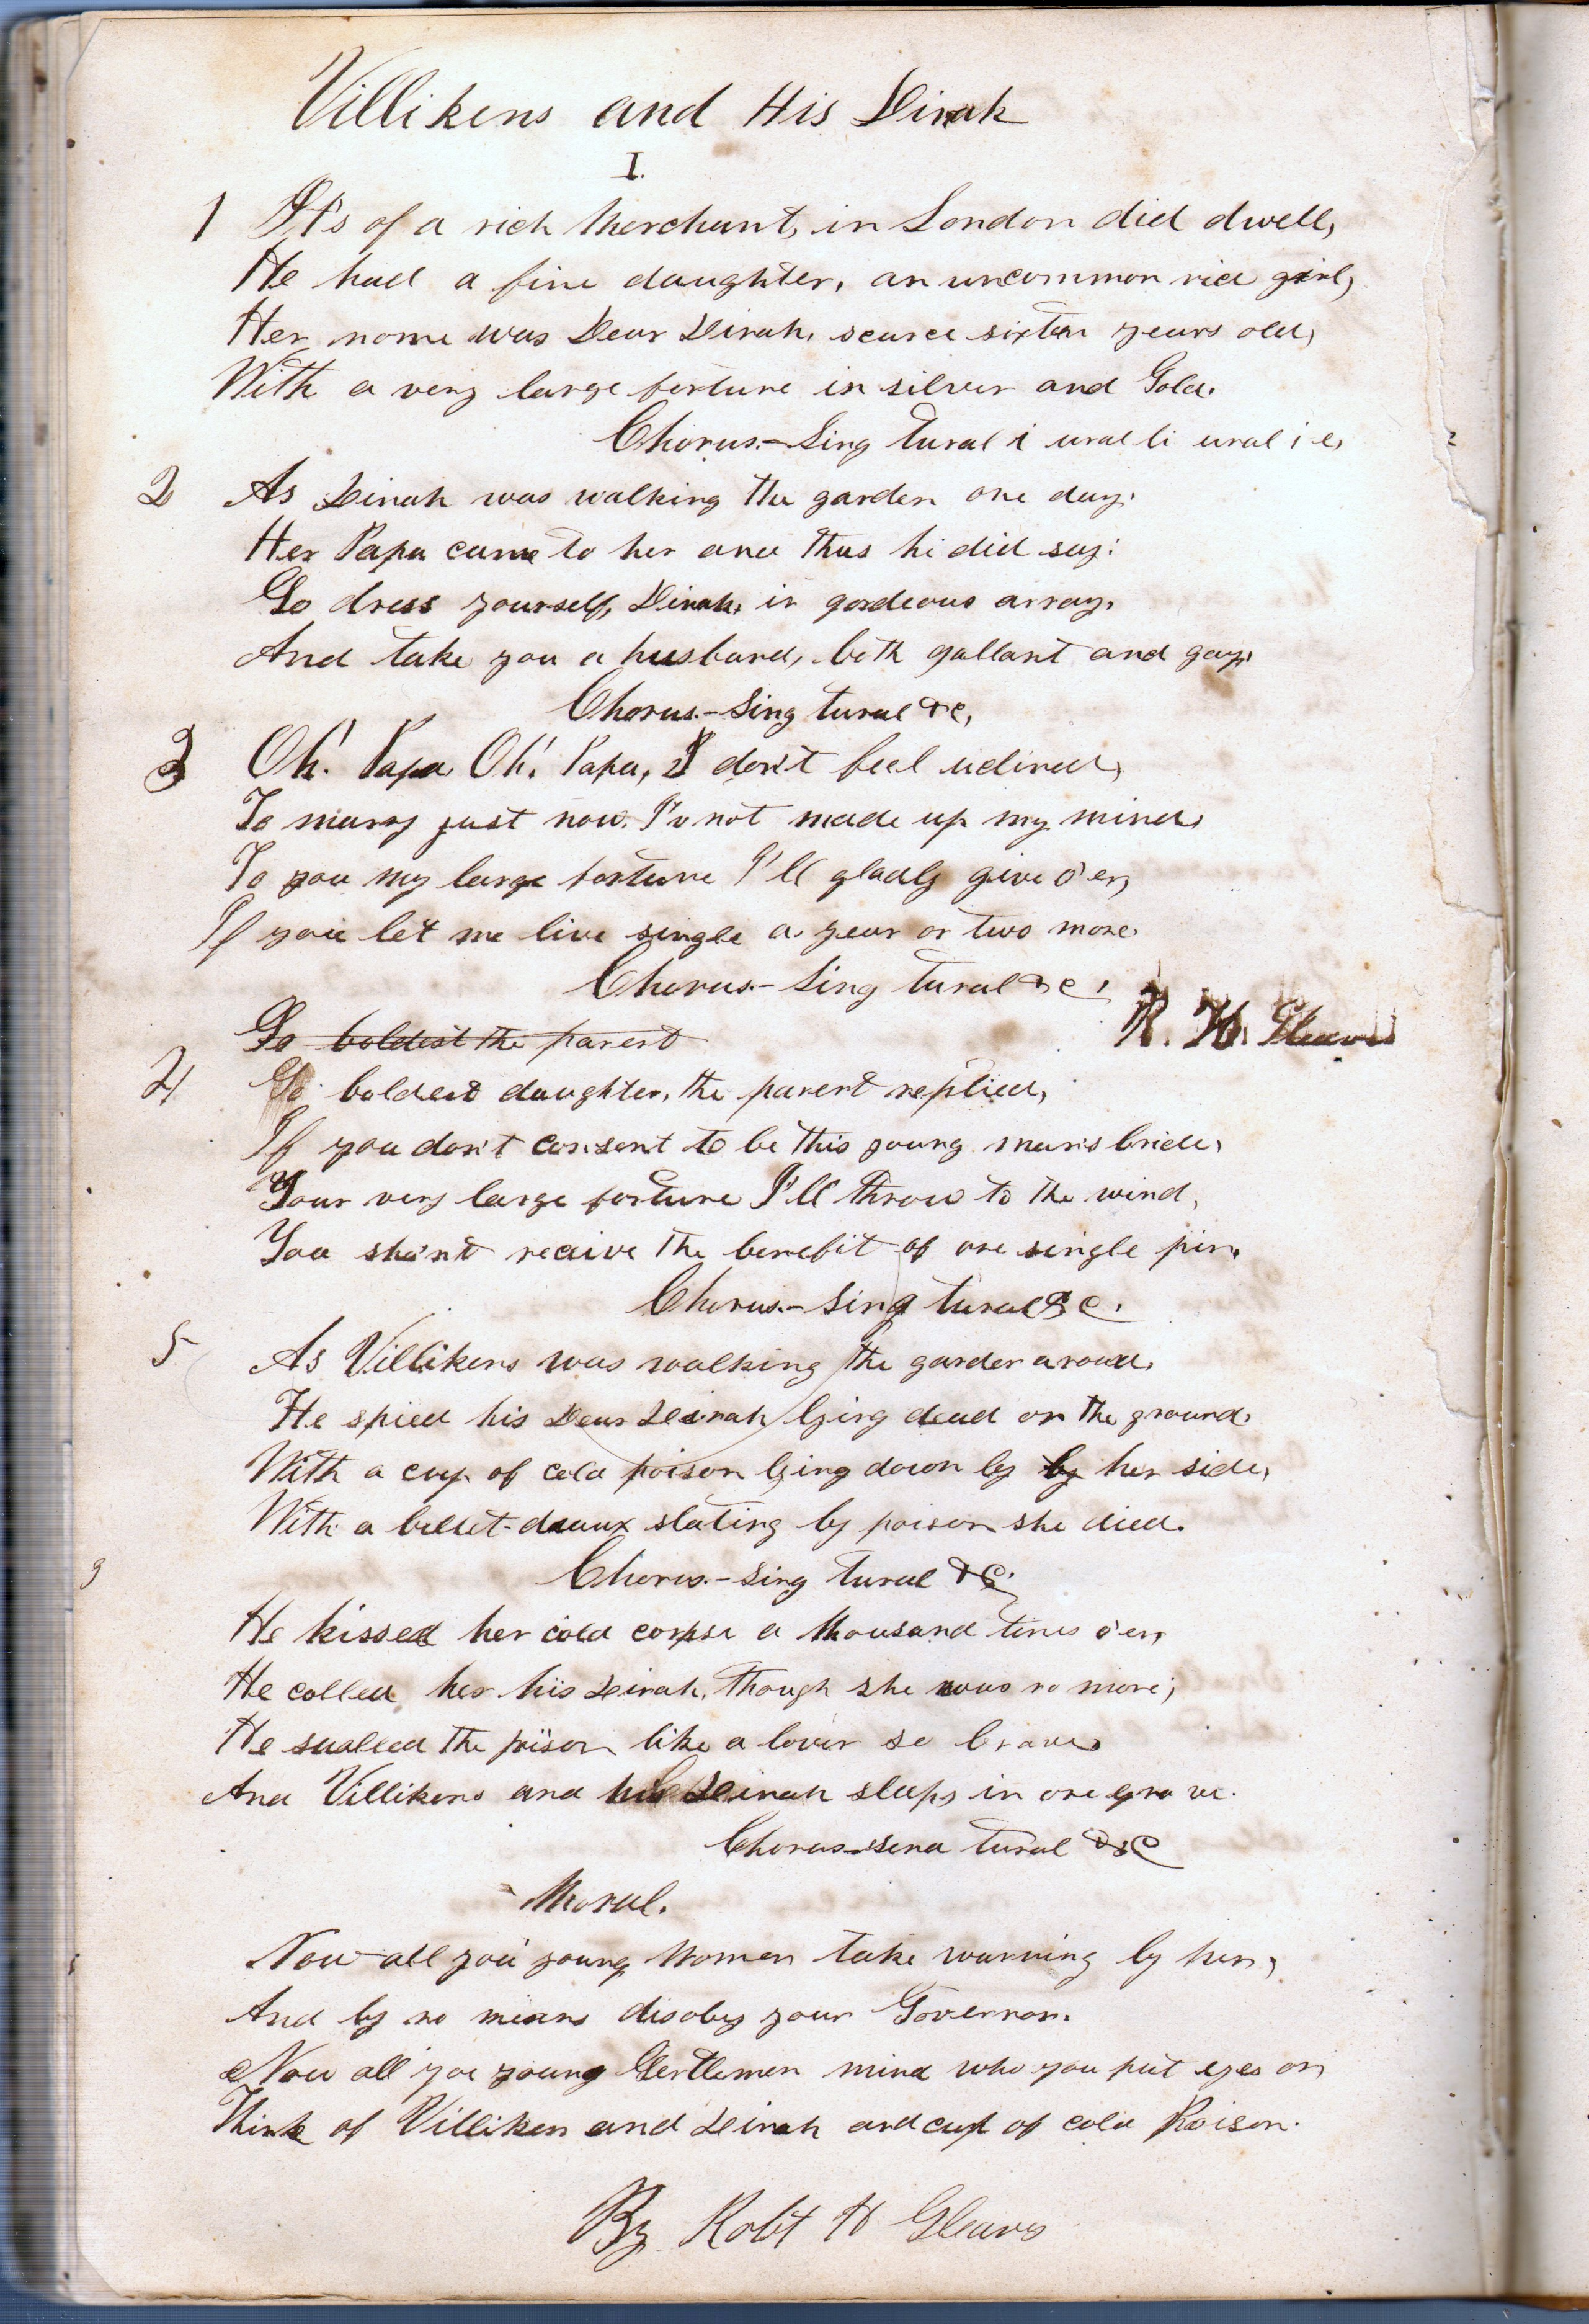 Villikens and His Dinah
I.
1 It's of a rich Merchant, in London did dwell,
He had a fine daughter, an uncommon nice girl,
Her name was Dear Dinah, scarce sixteen years old,
With a very large fortune in silver and Gold.
Chorus.- Sing tural i ural li ural i e,
2 As Dinah was walking the garden one day.
Her Papa came to her and thus he did say:
Go dress yourself, Dinah, in gordeous array,
And take you a husband, both gallant and gay.
Chorus.- Sing tural &c,
3 Oh! Papa Oh! Papa, I don't feel inclined,
To marry just now. I'v not made up my mind,
To you my large fortune I'll gladly give o'er,
If you let me live single a year or two more.
Chorus.- Sing tural &c,
R. H. Gleaves
Go boldest the parent
4 Go boldest daughter, the parent replied,
If you don't consent to be this young man's bride,
Your very large fortune I'll throw to the wind,
You sha'nt recive the benefit of one single pin.
Chorus.- Sing tural &c.
5 As Villikens was walking the garden around,
He spied his Dear Dinah lying dead on the ground,
With a cup of cold poison lying down by by her side,
With a billet-deaux stating by poison she died.
Chorus.- Sing tural &c.
He kissed her cold corpse a thousand times o'er,
He called her his Dinah, though she was no more,
He sualled the poison like a lover so brave,
And Villikens and his Dinah sleeps in one grave.
Chorus- tural &c
Moral.
Now all you young Women take warning by her,
And by no means disobey your Governor.
Now all you young Gentlemen mind who you put eyes on,
Think of Villiken and Dinah and cup of cold Poison.
By Robt H Gleaves